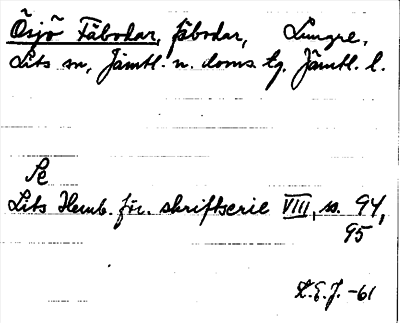 Örjö Fäbodar, fäbodar, Lungre,
Lits sn, Jämtl. n. doms. tg. Jämtl. l.
Se
Lits Hemb. för. skriftserie VIII, ss. 94,
95
L.E.J. -61